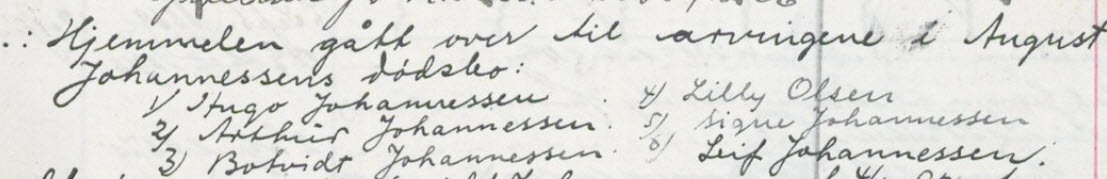 .: Hjemmelen gått over til arvingene i August
Johannessens dødsbo:
1) Hugo Johannessen . 4) Lilly Olsen
2) Arthur Johannessen. 5) Signe Johannessen
3) Botvidt Johannessen. 6) Leif Johannessen.